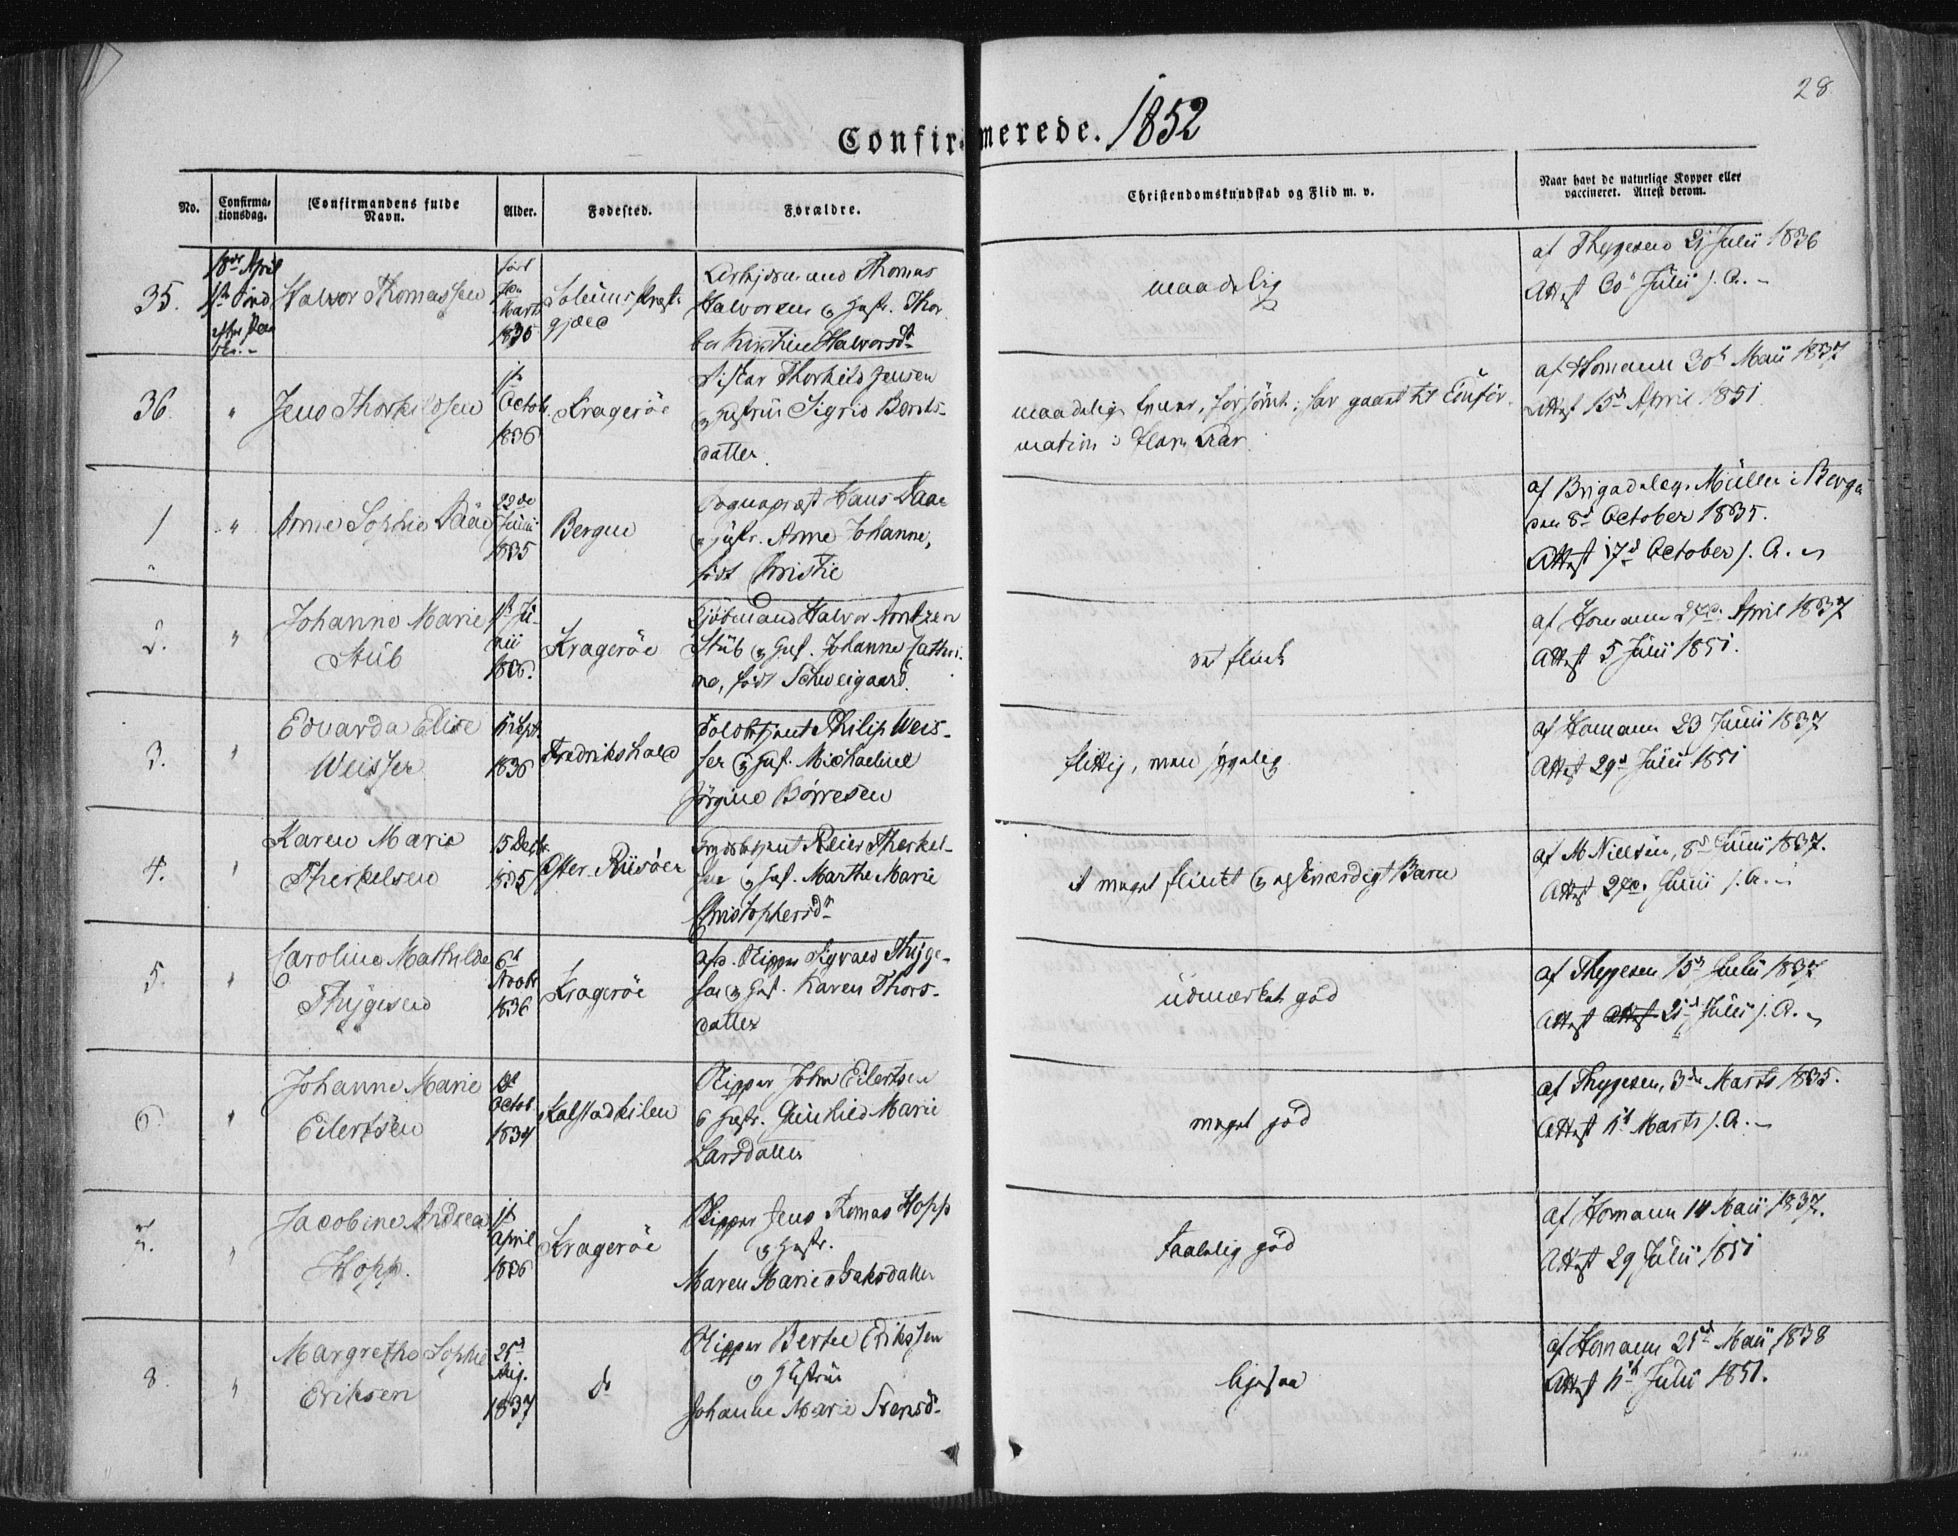 28
Confirmerede. 1852
No.
Confirmationsdag.
Confirmandens fulde Navn.
Alder.
Fødested.
Forældre.
Christendomskundskab og Flid m. v.
Naar havt de naturlige Kopper eller vaccineret. Attest derom.
35.
18de April
1st Sønd
efter Paa
Halvor Thomassen
født
Marts
1835
Solums Præst-
gjæld
Thomas
Halvorsen og Hustr. Thor
Kirstine Halvorsdt
maadelig
af Thygesen 21 Julii 1836
Attest Julii s. A. -
36.
"
Jens Thorkildsen
1st
Octob.
1836
Kragerøe
Thorkild Jensen
og Hustrue Sigrid Berits-
datter.
maadelig har gaaet til Confir-
mation i flere Aar.
af Homann 30t Maii 1837
Attest 15d April 1851
1
"
Anne Sophie Daae
22de
Junii
1835
Bergen
Sognepræst Hans Daae
og Hustr. Anne Johanne,
født Christie
af Brigadelæge Müller i Bergen
den 8d October 1835.
Attest 17d October s. A. -
2.
"
Johanne Marie
Stub
1st Ju-
nii
1836.
Kragerøe
Sjømand Halvor Arntzen
Stub og Hust. Johanne Cathri-
ne, født Schweigaard.
flink
af Homann April 1837
Attest 5 Julii 1851.
3.
"
Edvarda Elise
Weisser
Sept.
1836
Fredrikshald
Toldbetjent Philip Weis-
ser og Hust. Michaeline
Jørgine Børresen
flittig, men sygelig
af Homann 23 Junii 1837
Attest 29d Julii 1851
4.
"
Karen Marie
Therkelsen
15 Decbr.
1835
Øster-Riisøer
Reier Therkel-
sen og Hust. Marthe Marie
Christophersdtr
et meget flinkt og elskværdigt Barn
af M Nielsen, 8d Junii 1837.
Attest Junii s. A. -
5.
"
Caroline Mathilde
Thygesen
6d
Novbr
1836
Kragerøe
afd. Skipper Sigvald Thyge-
sen og Hust. Karen Thors-
datter
udmærket god
af Thygesen 15d Julii 1837
Attest Attest 21d Julii s. A. -
6.
"
Johanne Marie
Eilertsen
Octob.
1834
Kalstadkilen
Skipper John Eilertsen
og Hustr. Gunhild Marie
Larsdatter
meget god
af Thygesen, 3de Marts 1835.
Attest Marts s. A. -
7.
"
Jacobine Andrea
Hopp.
1st
April
1836
Kragerøe
Skipper Jens Thomas Hopp
og Hustr.
Maren Marie Isaksdatter
taalelig god
af Homann 14 Maii 1837.
Attest 29 Julii 1851
8.
"
Margrethe Sophie
Eriksen
25d
Aug.
1837
do
Skipper Bertel Erikssen
og Hustrue
Johanne Marie Svensdt
ligesaa
af Homann 21d Maii, 1838
Attest Julii 1851.